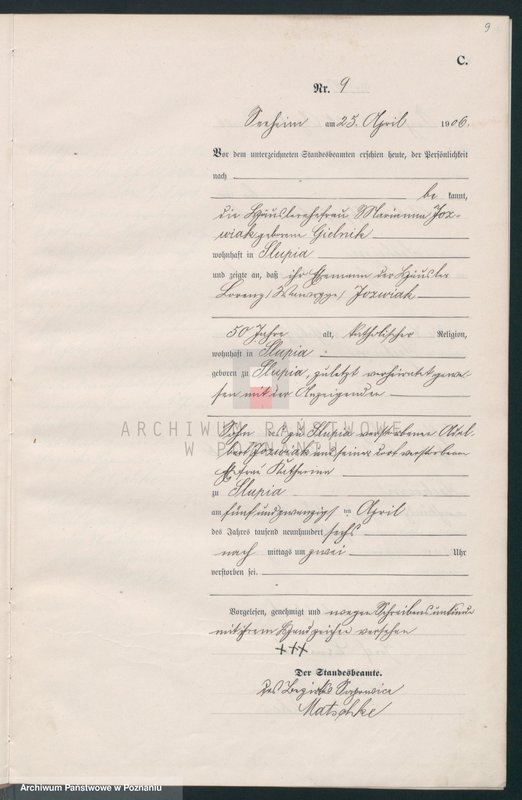 9
C.
Nr. 9
Seeheim am 25. April 1906.
Vor dem unterzeichneten Standesbeamten erschien heute, der Persönlichkeit
nach
be kannt,
die Häuslerehefrau Marianna Joz-
wiak geborene Gielnik
wohnhaft in Slupia
und zeigte an, daß ihr Ehemann der Häusler
Lorenz /Wawrzyn/ Jozwiak
50 Jahre alt, katholischer Religion,
wohnhaft in Slupia
geboren zu Slupia, zuletzt verheiratet gewe-
sen mit der Anzeigenden
ARCHIWUM PAŃSTWOWE
W POZNANIU
Sohn des zu Slupia verstorbenen Adal
bert Jozwiak und seiner dort verstorbenen
Ehefrau Katharina
zu Slupia
am fünfundzwanzigst en April
des Jahres tausend neunhundert sechs
nach mittags um zwei Uhr
verstorben sei.
Vorgelesen, genehmigt und wegen Schreibensunkunde
mit ihrem Handzeichen versehen
+++
Der Standesbeamte.
des Bezirks
Matschke
Archiwum Panstwowe w Poznaniu